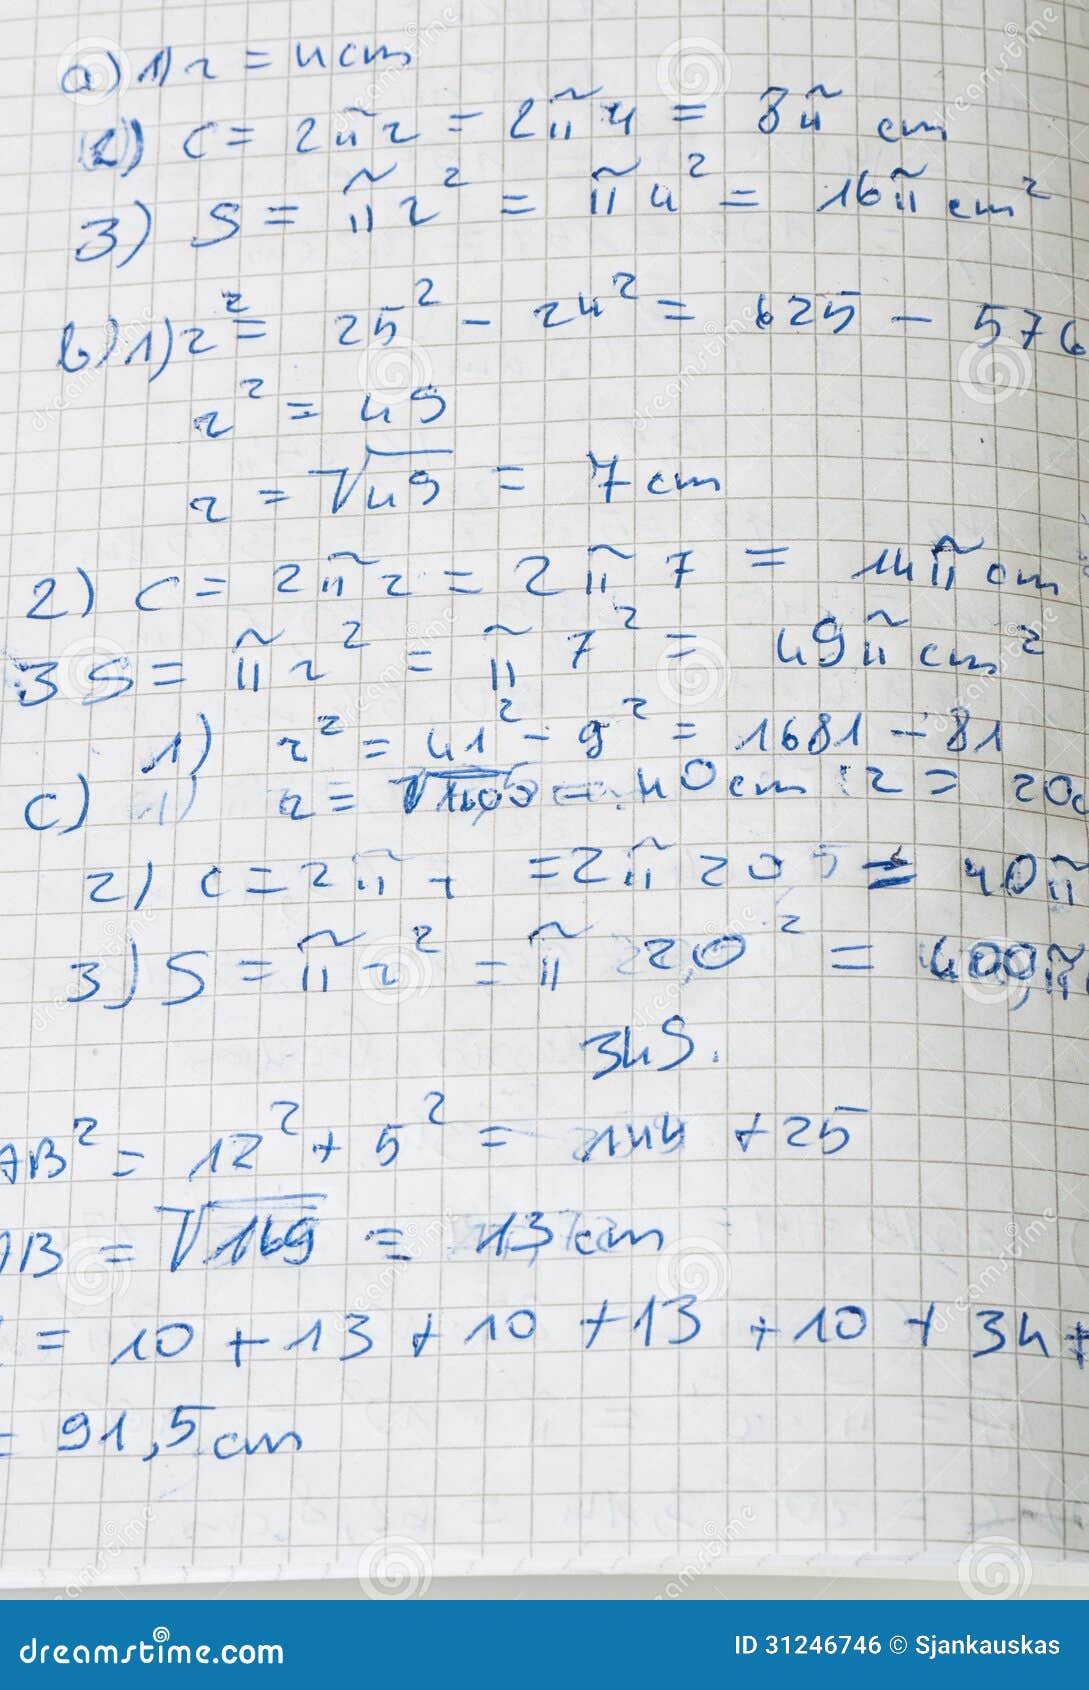 a) 1) r = 4 cm
2) C = 2πr = 2π4 = 8π cm
3) S = πr² = π4² = 16π cm²
b) 1) r² = 25² - 24² = 625 - 576
r² = 49
r = √49 = 7 cm
2) C = 2πr = 2π7 = 14π cm
3 S = πr² = π7² = 49π cm²
1) r² = 41² - 9² = 1681 - 81
c) r = √1600 = 40 cm : 2 = 20c
2) C = 2πr = 2π20 = 40π
3) S = πr² = π20² = 400π
345.
AB² = 12² + 5² = 144 + 25
AB = √169 = 13 cm
= 10 + 13 + 10 + 13 + 10 + 34 +
= 91,5 cm
dreamstime.com
ID 31246746 © Sjankauskas